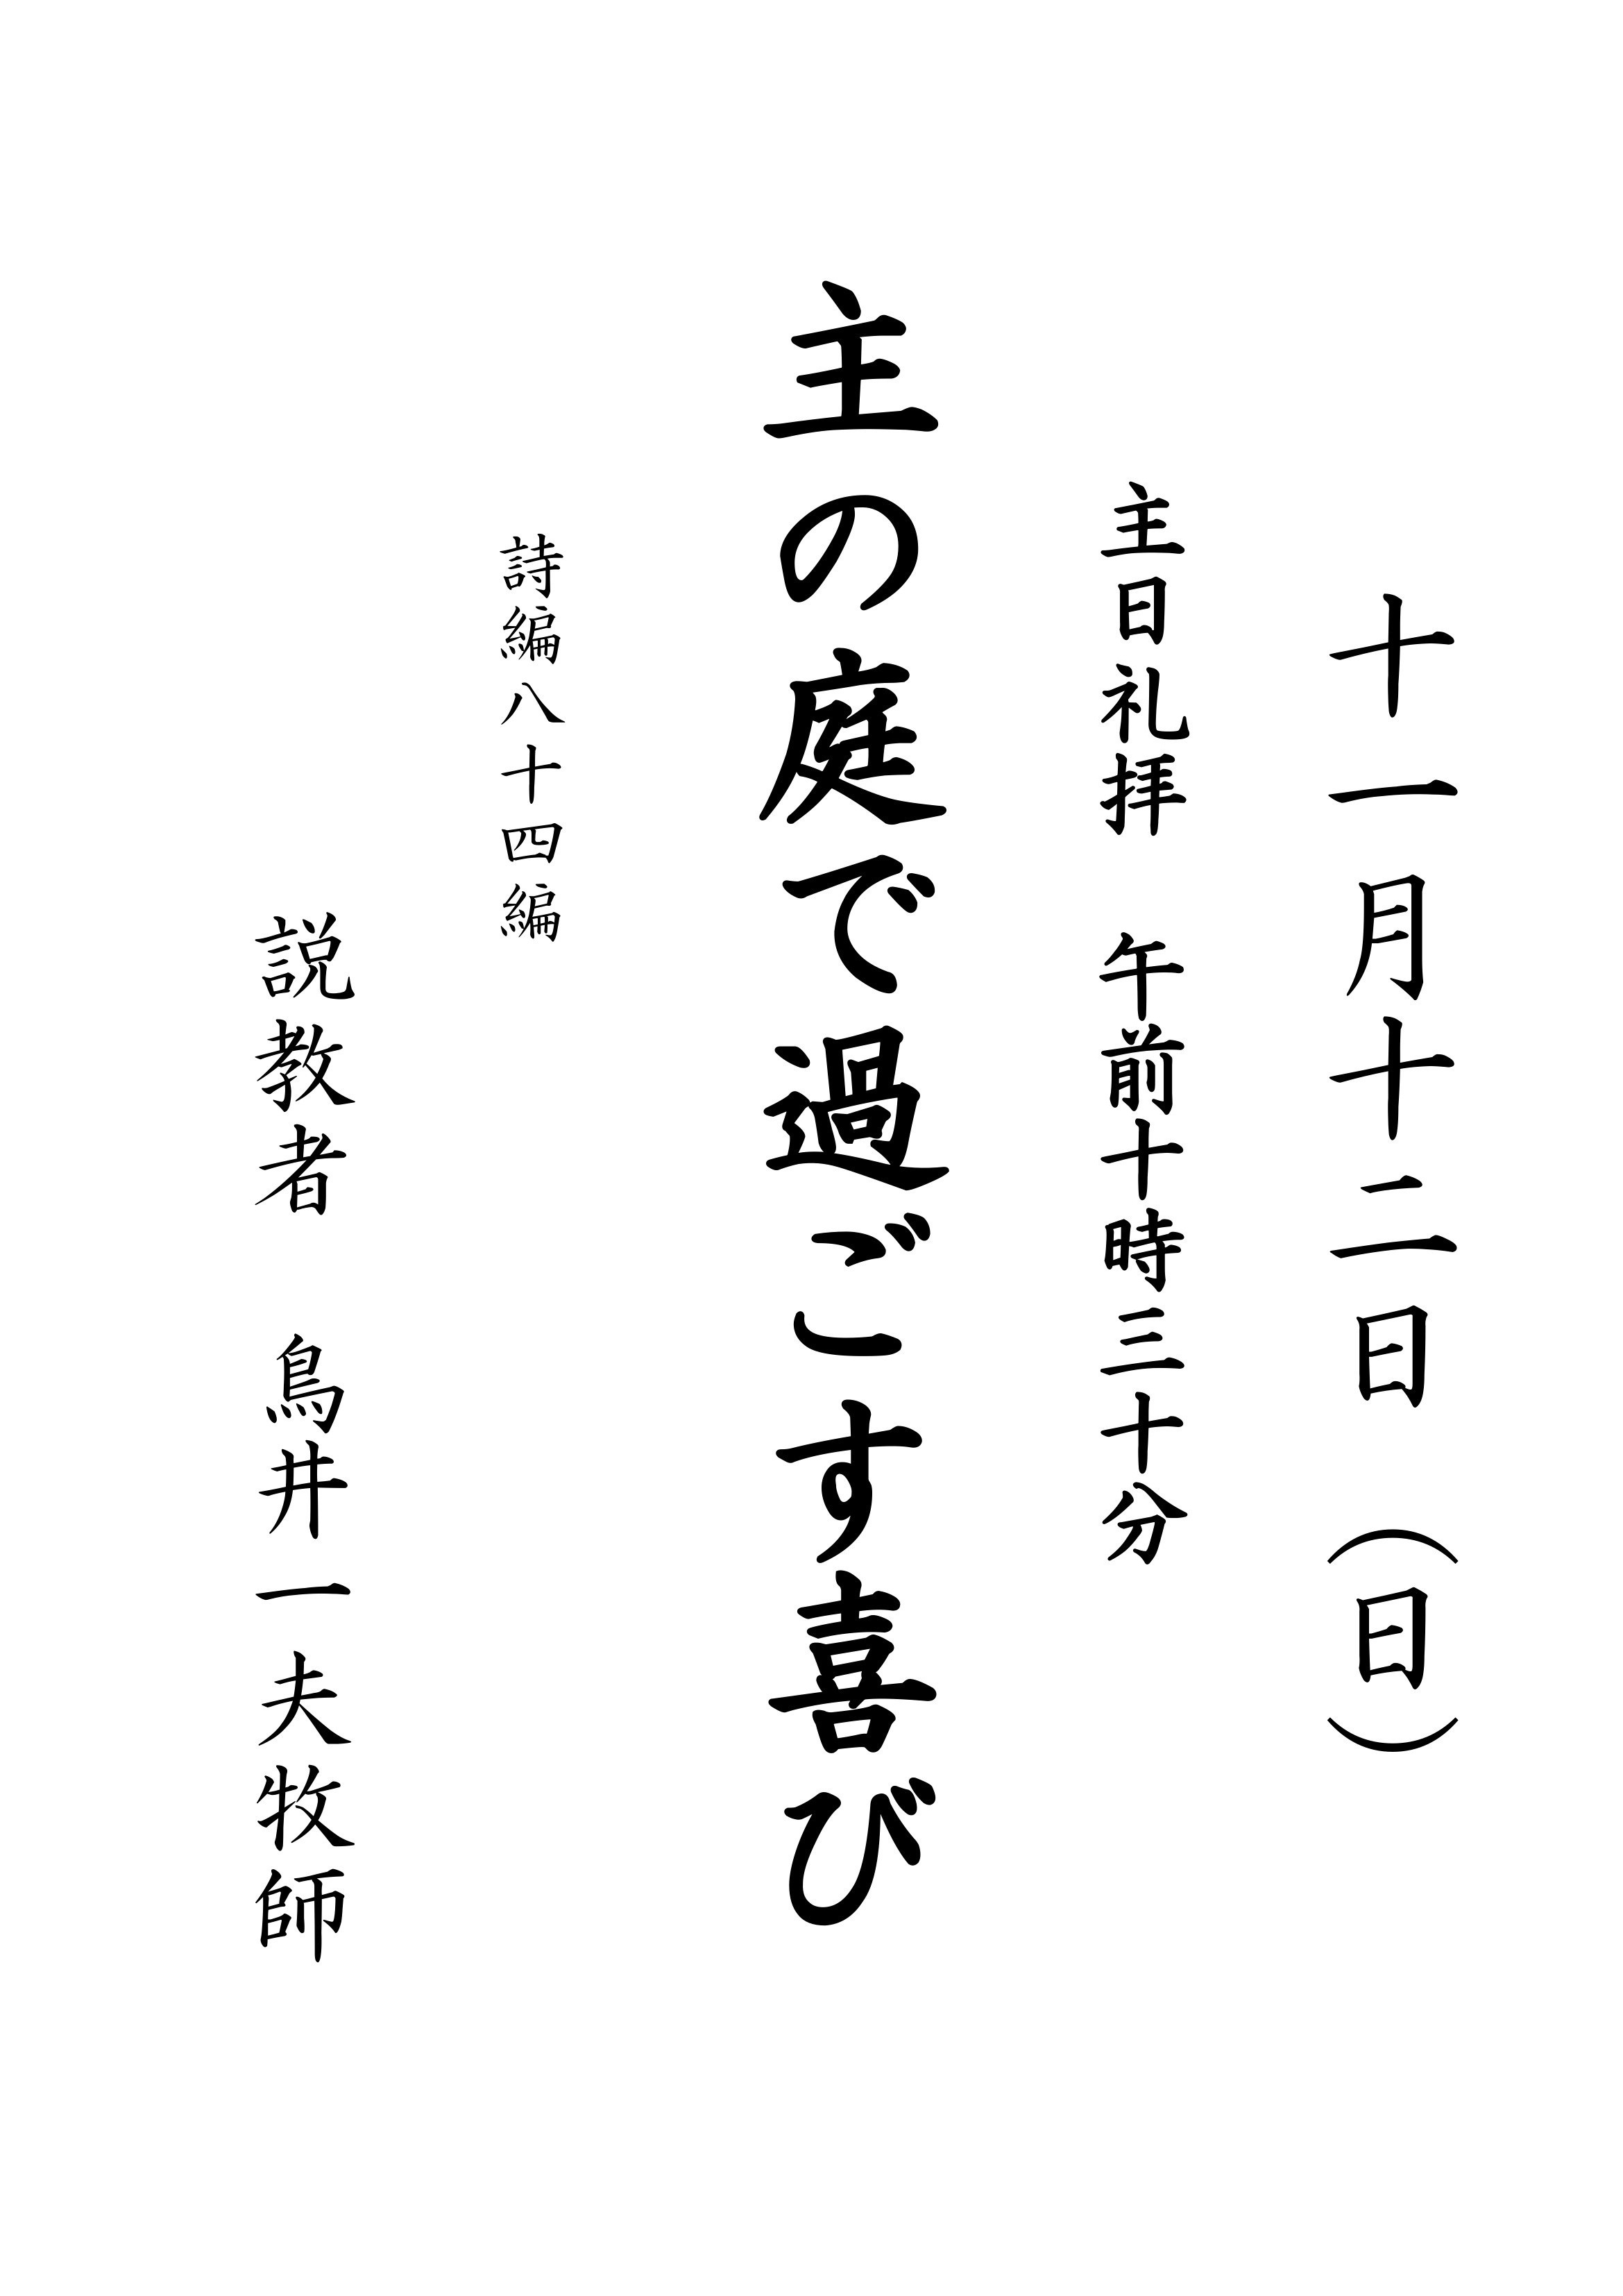 十一月十二日（日）
主日礼拝　午前十時三十分
主の庭で過ごす喜び
詩編八十四編
説教者　鳥井一夫牧師